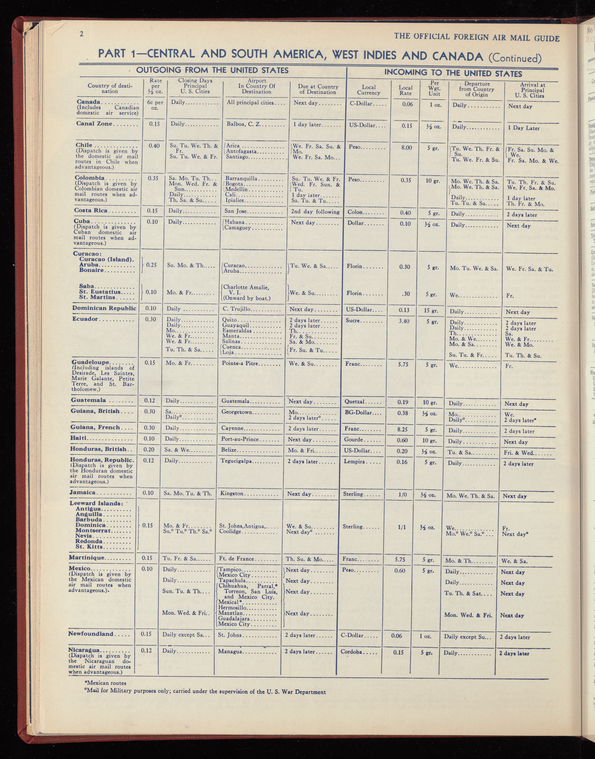 2
THE OFFICIAL FOREIGN AIR MAIL GUIDE
PART 1—CENTRAL AND SOUTH AMERICA, WEST INDIES AND CANADA (Continued)
OUTGOING FROM THE UNITED STATES INCOMING TO THE UNITED STATES
Country of destination Rate per ½ oz. Closing Days Principal U. S. Cities Airport In Country Of Destination Due at Country of Destination Local Currency Local Rate Per Wgt. Unit Departure from Country of Origin Arrival at Principal U. S. Cities
Canada 6c per oz. Daily All principal cities Next day C-Dollar 0.06 1 oz. Daily Next day
(Includes Canadian
domestic air service)
Canal Zone 0.15 Daily Balboa, C. Z. 1 day later US-Dollar 0.15 ½ oz. Daily 1 Day Later
Chile 0.40 Su. Tu. We. Th. & Fr. Arica We. Fr. Sa. Su. & Mo. Peso 8.00 5 gr. Tu. We. Th. Fr. & Su. Fr. Sa. Su. Mo. & We.
(Dispatch is given by Antofagasta
the domestic mail Su. Tu. We. & Fr. Santiago We. Fr. Sa. Mo. Tu. We. Fr. & Su. Fr. Sa. Mo. & We.
routes in Chile when
advantageous.)
Colombia 0.35 Sa. Mo. Tu. Th. Barranquilla Su. Tu. We. & Fr. Peso 0.35 10 gr. Mo. We. Th. & Sa. Tu. Th. Fr. & Su.
(Dispatch is given by Mon. Wed. Fr. & Sun. Bogota Wed. Fr. Sun. & Tu. Mo. We. Th. & Sa. We. Fr. Sa. & Mo.
Colombian domestic air Medellin
mail routes when ad- Daily Cali 1 day later Daily 1 day later
vantageous.) Th. Sa. & Su. Ipiales Su. Tu. & Tu. Tu. Tu. & Sa. Th. Fr. & Mo.
Costa Rica 0.15 Daily San Jose 2nd day following Colon 0.40 5 gr. Daily 2 days later
Cuba 0.10 Daily Habana Next day Dollar 0.10 ½ oz. Daily Next day
(Dispatch is given by Camaguey
Cuban domestic air
mail routes when ad-
vantageous.)
Curacao:
Curacao (Island).
Aruba 0.25 Su. Mo. & Th. Curacao Tu. We. & Sa. Florin 0.30 5 gr. Mo. Tu. We. & Sa. We. Fr. Sa. & Tu.
Bonaire Aruba
Saba Charlotte Amalie,
St. Eustatius 0.10 Mo. & Fr. V. I. We. & Su. Florin .30 5 gr. We. Fr.
St. Martins (Onward by boat.)
Dominican Republic 0.10 Daily C. Trujillo Next day US-Dollar 0.13 15 gr. Daily Next day
Ecuador 0.30 Daily Quito 2 days later Sucre 3.40 5 gr. Daily 2 days later
Daily Guayaquil 2 days later Daily 2 days later
Mo. Esmeraldas Th. Th. Sa.
We. & Fr. Manta Fr. & Su. Mo. & We. We. & Fr.
We. & Fr. Salinas Sa. & Mo. Mo. & Sa. We. & Mo.
Tu. Th. & Sa. Cuenca Fr. Su. & Tu. Su. Tu. & Fr. Tu. Th. & Su.
Loja
Guadeloupe 0.15 Mo. & Fr. Pointe-à Pitre We. & Su. Franc 5.75 5 gr. We. Fr.
(Including islands of
Desirade, Les Saintes,
Marie Galante, Petite
Terre, and St. Bar-
tholomew.)
Guatemala 0.12 Daily Guatemala Next day Quetzal 0.19 10 gr. Daily Next day
Guiana, British 0.30 Sa. Georgetown Mo. BG-Dollar 0.38 ½ oz. Mo. We.
Daily 2 days later Daily 2 days later
Guiana, French 0.30 Daily Cayenne 2 days later Franc 8.25 5 gr. Daily 2 days later
Haiti 0.10 Daily Port-au-Prince Next day Gourde 0.60 10 gr. Daily Next day
Honduras, British 0.20 Sa. & We. Belize Mo. & Fri. US-Dollar 0.20 ½ oz. Tu. & Sa. Fri. & Wed.
Honduras, Republic. 0.12 Daily Tegucigalpa 2 days later Lempira 0.16 5 gr. Daily 2 days later
(Dispatch is given by
the Honduran domestic
air mail routes when
advantageous.)
Jamaica 0.10 Sa. Mo. Tu. & Th. Kingston Next day Sterling 1/0 ½ oz. Mo. We. Th. & Sa. Next day
Leeward Islands:
Antigua
Anguilla
Barbuda
Dominica 0.15 Mo. & Fr. St. Johns, Antigua, We. & Su. Sterling 1/1 ½ oz. We. Fr.
Montserrat Su. Tu. Th. Sa. Coolidge Next day Mo. We. Sa. Next day
Nevis
Redonda
St. Kitts
Martinique 0.15 Tu. Fr. & Sa. Ft. de France Th. Su. & Mo. Franc 5.75 5 gr. Mo. & Th. We. & Sa.
Mexico 0.10 Daily Tampico Next day Peso 0.60 5 gr. Daily Next day
(Dispatch is given by Mexico City
the Mexican domestic Daily Tapachula Next day Daily Next day
air mail routes when Sun. Tu. & Th. Chihuahua, Parral,* Next day Tu. Th. & Sat. Next day
advantageous.) Torreon, San Luis,
and Mexico City.
Mexicali*
Hermosillo
Mon. Wed. & Fri. Mazatlan Next day Mon. Wed. & Fri. Next day
Guadalajara
Mexico City
Newfoundland 0.15 Daily except Sa. St. Johns 2 days later C-Dollar 0.06 1 oz. Daily except Su. 2 days later
Nicaragua 0.12 Daily Managua 2 days later Cordoba 0.15 5 gr. Daily 2 days later
(Dispatch is given by
the Nicaraguan do-
mestic air mail routes
when advantageous.)
*Mexican routes
Mail for Military purposes only; carried under the supervision of the U. S. War Department